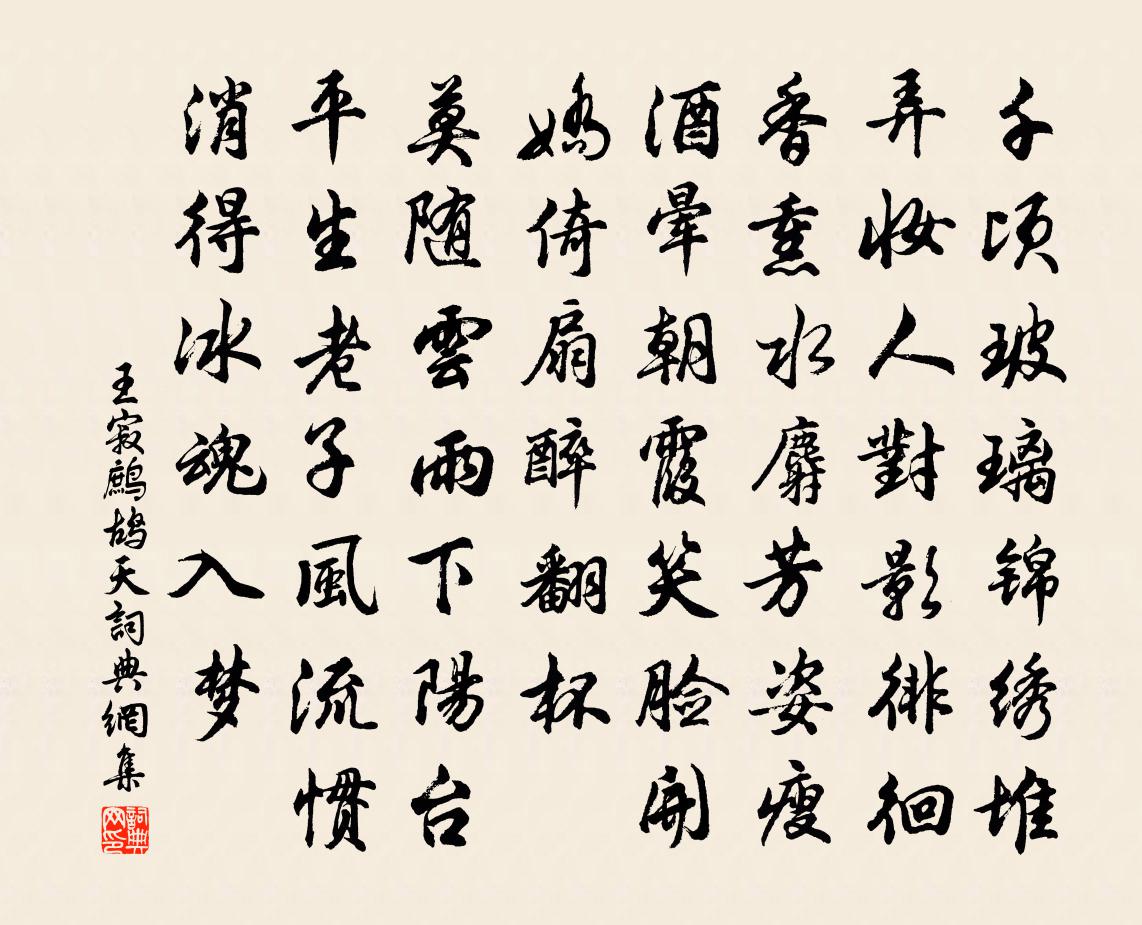 千顷玻璃锦绣堆
弄妆人對影徘徊
香熏水麝芳姿瘦
酒暈朝霞笑脸開
嬌倚扇醉翻杯
莫随雲雨下陽台
平生老子風流慣
消得冰魂入梦
王寂鷓鴣天詞典網集
詞典网印